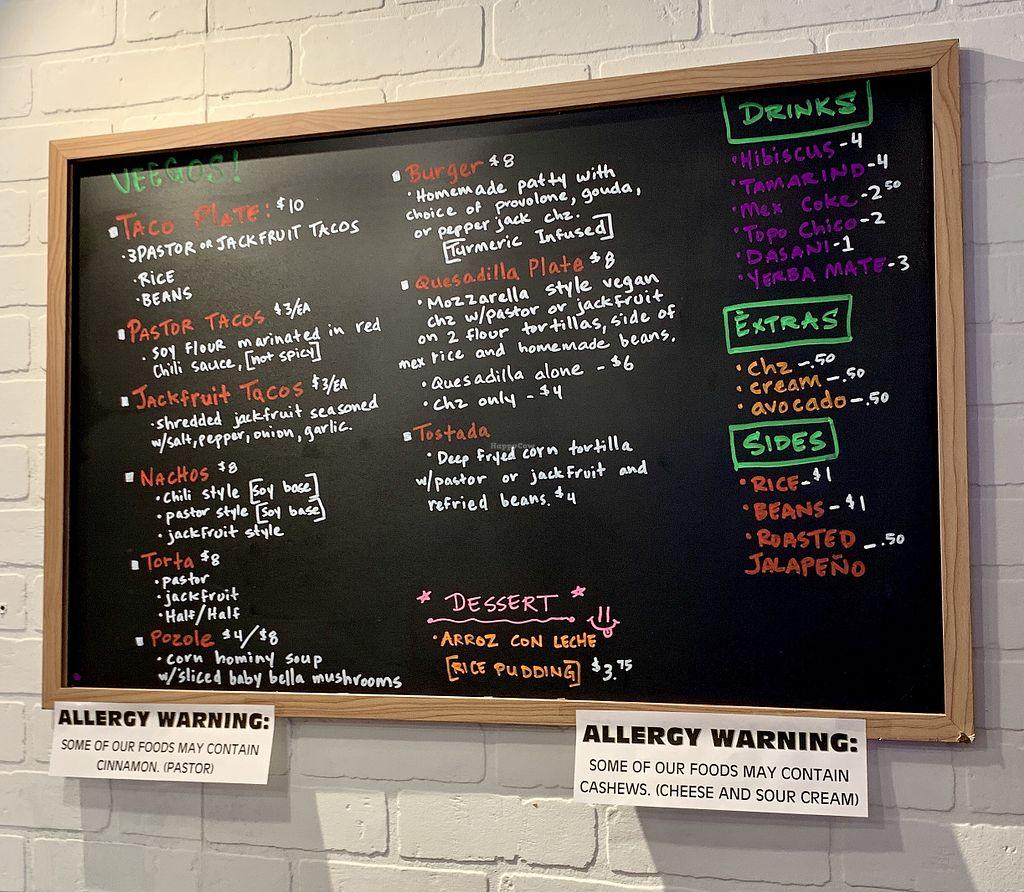 VEEGOS!
TACO PLATE: $10
•3PASTOR OR JACKFRUIT TACOS
•RICE
•BEANS
PASTOR TACOS $3/EA
•SOY FLOUR marinated in red
Chili sauce, [not spicy]
Jackfruit Tacos $3/EA
•shredded jackfruit seasoned
w/salt, pepper, onion, garlic.
NACHOS $8
•Chili style [Soy base]
•pastor style [Soy base]
•jackfruit style
Torta $8
•pastor
•jackfruit
•Half/Half
Pozole $4/$8
•corn hominy soup
w/sliced baby bella mushrooms
Burger $8
•Homemade patty with
choice of provolone, gouda,
or pepper jack chz.
[Turmeric Infused]
Quesadilla Plate $8
•Mozzarella style vegan
chz w/pastor or jackfruit
on 2 flour tortillas, side of
mex rice and homemade beans.
•Quesadilla alone - $6
•Chz only - $4
Tostada
•Deep fryed corn tortilla
w/pastor or jackfruit and
refried beans. $4
HappyCow
* DESSERT *
•ARROZ CON LECHE
[RICE PUDDING] $3.75
DRINKS
•Hibiscus-4
•TAMARIND-4
•Mex Coke-2.50
•Topo Chico-2
•DASANI-1
•YERBA MATE-3
EXTRAS
•Chz -.50
•cream-.50
•avocado-.50
SIDES
•RICE-$1
•BEANS-$1
•ROASTED -.50
JALAPEÑO
ALLERGY WARNING:
SOME OF OUR FOODS MAY CONTAIN
CINNAMON. (PASTOR)
ALLERGY WARNING:
SOME OF OUR FOODS MAY CONTAIN
CASHEWS. (CHEESE AND SOUR CREAM)